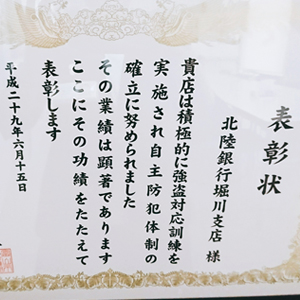 表彰状
北陸銀行堀川支店 様
貴店は積極的に強盗対応訓練を
実施され自主防犯体制の
確立に努められました
その業績は顕著であります
ここにその功績をたたえて
表彰します
平成二十九年六月十五日